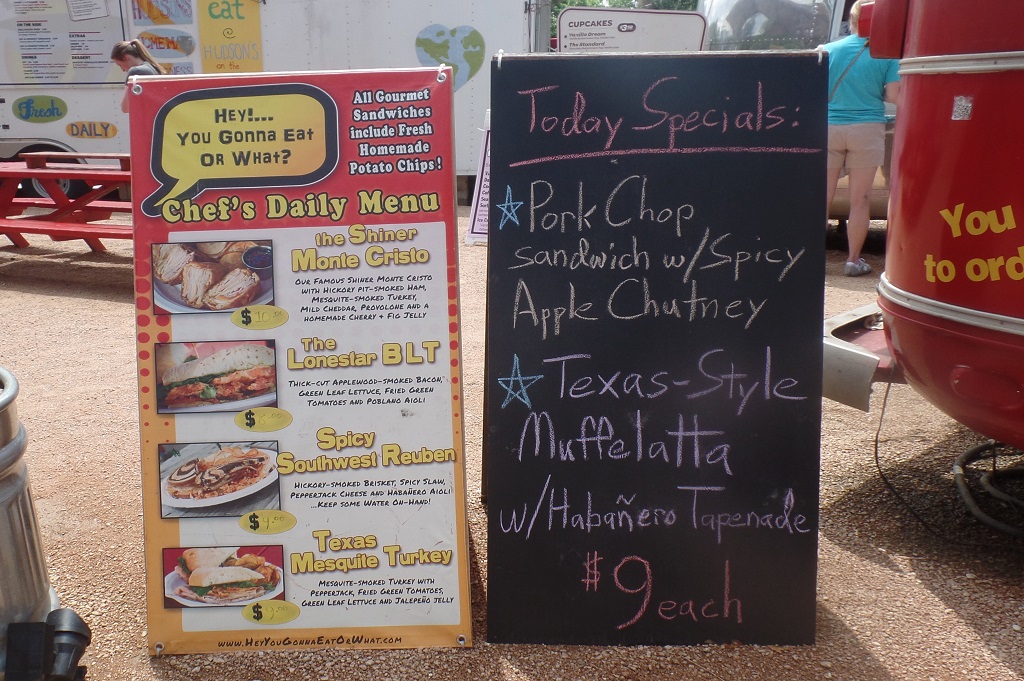 eat
HUDSON'S
on the
Fresh
DAILY
CUPCAKES
Vanilla Dream
The Standard
HEY!...
YOU GONNA EAT
OR WHAT?
All Gourmet
Sandwiches
include Fresh
Homemade
Potato Chips!
Chef's Daily Menu
the Shiner
Monte Cristo
Our Famous Shiner Monte Cristo
with Hickory pit-smoked Ham,
Mesquite-smoked Turkey,
Mild Cheddar, Provolone and a
homemade Cherry & Fig Jelly
$
The
Lonestar BLT
Thick-cut Applewood-smoked Bacon,
Green Leaf Lettuce, Fried Green
Tomatoes and Poblano Aioli
$
Spicy
Southwest Reuben
Hickory-smoked Brisket, Spicy Slaw,
Pepperjack Cheese and Habañero Aioli
...Keep some Water On-Hand!
$
Texas
Mesquite Turkey
Mesquite-smoked Turkey with
Pepperjack, Fried Green Tomatoes,
Green Leaf Lettuce and Jalepeño jelly
$
www.HeyYouGonnaEatOrWhat.com
Today Specials:
Pork Chop
sandwich w/Spicy
Apple Chutney
Texas-Style
Muffelatta
w/Habañero Tapenade
$9 each
You
to ord